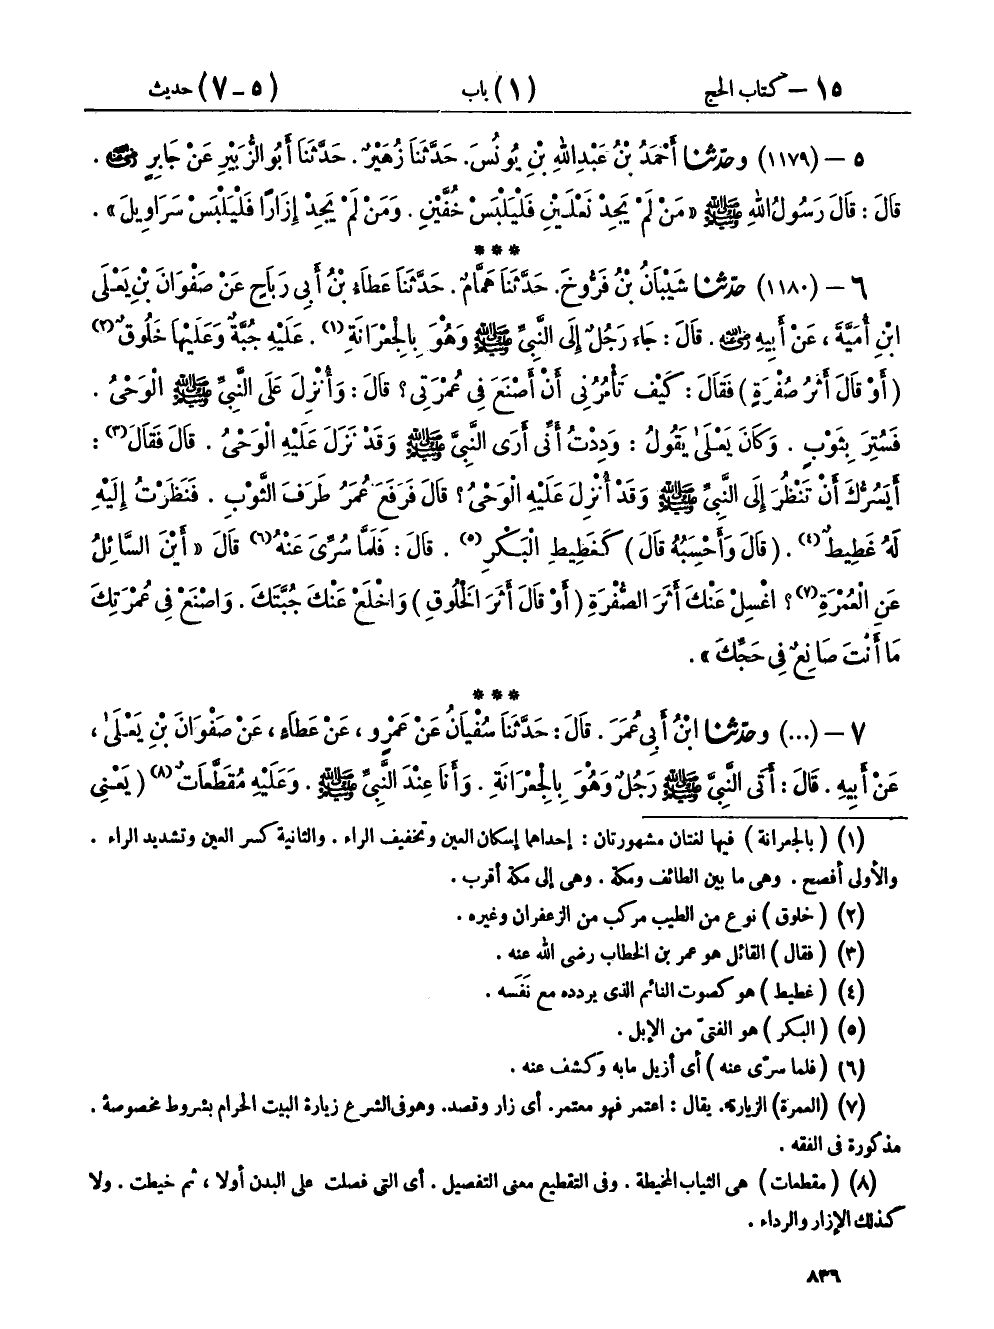 ١٥ – كتاب الحج (١) باب (٥ – ٧) حديث
٥ – (١١٧٩) وحدّثنا أَحْمَدُ بْنُ عَبْدِ اللهِ بْنِ يُونُسَ. حَدَّثَنَا زُهَيْرٌ. حَدَّثَنَا أَبُو الزُّبَيْرِ عَنْ جَابِرٍ رضي الله عنه .
قَالَ : قَالَ رَسُولُ اللهِ ﷺ « مَنْ لَمْ يَجِدْ نَعْلَيْنِ فَلْيَلْبَسْ خُفَّيْنِ . وَمَنْ لَمْ يَجِدْ إِزَارًا فَلْيَلْبَسْ سَرَاوِيلَ » .
***
٦ – (١١٨٠) حدّثنا شَيْبَانُ بْنُ فَرُّوخَ. حَدَّثَنَا هَمَّامٌ. حَدَّثَنَا عَطَاءُ بْنُ أَبِي رَبَاحٍ عَنْ صَفْوَانَ بْنِ يَعْلَى
ابْنِ أُمَيَّةَ ، عَنْ أَبِيهِ رضي الله عنه . قَالَ : جَاءَ رَجُلٌ إِلَى النَّبِيِّ ﷺ وَهُوَ بِالْجِعْرَانَةِ(١) . عَلَيْهِ جُبَّةٌ وَعَلَيْهَا خَلُوقٌ(٢)
( أَوْ قَالَ أَثَرُ صُفْرَةٍ ) فَقَالَ : كَيْفَ تَأْمُرُنِي أَنْ أَصْنَعَ فِي عُمْرَتِي ؟ قَالَ : وَأُنْزِلَ عَلَى النَّبِيِّ ﷺ الْوَحْيُ .
فَسُتِرَ بِثَوْبٍ . وَكَانَ يَعْلَىٰ يَقُولُ : وَدِدْتُ أَنِّي أَرَى النَّبِيَّ ﷺ وَقَدْ نَزَلَ عَلَيْهِ الْوَحْيُ . قَالَ فَقَالَ(٣) :
أَيَسُرُّكَ أَنْ تَنْظُرَ إِلَى النَّبِيِّ ﷺ وَقَدْ أُنْزِلَ عَلَيْهِ الْوَحْيُ ؟ قَالَ فَرَفَعَ عُمَرُ طَرَفَ الثَّوْبِ . فَنَظَرْتُ إِلَيْهِ
لَهُ غَطِيطٌ(٤) . ( قَالَ وَأَحْسَبُهُ قَالَ ) كَغَطِيطِ الْبَكْرِ(٥) . قَالَ : فَلَمَّا سُرِّيَ عَنْهُ(٦) قَالَ « أَيْنَ السَّائِلُ
عَنِ الْعُمْرَةِ(٧) ؟ اغْسِلْ عَنْكَ أَثَرَ الصُّفْرَةِ ( أَوْ قَالَ أَثَرَ الْخَلُوقِ ) وَاخْلَعْ عَنْكَ جُبَّتَكَ . وَاصْنَعْ فِي عُمْرَتِكَ
مَا أَنْتَ صَانِعٌ فِي حَجِّكَ » .
***
٧ – (...) وحدّثنا ابْنُ أَبِي عُمَرَ . قَالَ : حَدَّثَنَا سُفْيَانُ عَنْ عَمْرٍو ، عَنْ عَطَاءٍ ، عَنْ صَفْوَانَ بْنِ يَعْلَىٰ ،
عَنْ أَبِيهِ . قَالَ : أَتَى النَّبِيَّ ﷺ رَجُلٌ وَهُوَ بِالْجِعْرَانَةِ . وَأَنَا عِنْدَ النَّبِيِّ ﷺ . وَعَلَيْهِ مُقَطَّعَاتٌ(٨) ( يَعْنِي
(١) ( بالجعرانة ) فيها لغتان مشهورتان : إحداهما إسكان العين وتخفيف الراء . والثانية كسر العين وتشديد الراء .
والأولى أفصح . وهى ما بين الطائف ومكة . وهى إلى مكة أقرب .
(٢) ( خلوق ) نوع من الطيب مركب من الزعفران وغيره .
(٣) ( فقال ) القائل هو عمر بن الخطاب رضى الله عنه .
(٤) ( غطيط ) هو كصوت النائم الذى يردده مع نَفَسه .
(٥) ( البكر ) هو الفتىّ من الإبل .
(٦) ( فلما سرّى عنه ) أى أزيل مابه وكشف عنه .
(٧) (العمرة) الزيارة. يقال : اعتمر فهو معتمر. أى زار وقصد. وهوفى الشرع زيارة البيت الحرام بشروط مخصوصة .
مذكورة فى الفقه .
(٨) ( مقطعات ) هى الثياب المخيطة . وفى التقطيع معنى التفصيل . أى التى فصلت على البدن أولا ، ثم خيطت . ولا
كذلك الإزار والرداء .
٨٣٦